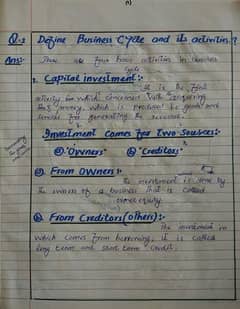 Q-2 Define Business Cycle and its activities?
Ans:- There are four basic activities in business
cycle
1. Capital investment:-
It is the first
activity in which concerned with acquiring
the money, which is produced the goods and
services for generating the revenue.
Investment comes for two sources:
(a) "Owners" (b) "Creditors"
(a) From Owners:-
The investment is done by
the owners of a business that is called
owner equity.
(b) From Creditors (others):-
The investment in
which comes from borrowing, it is called
long term and short term credit.